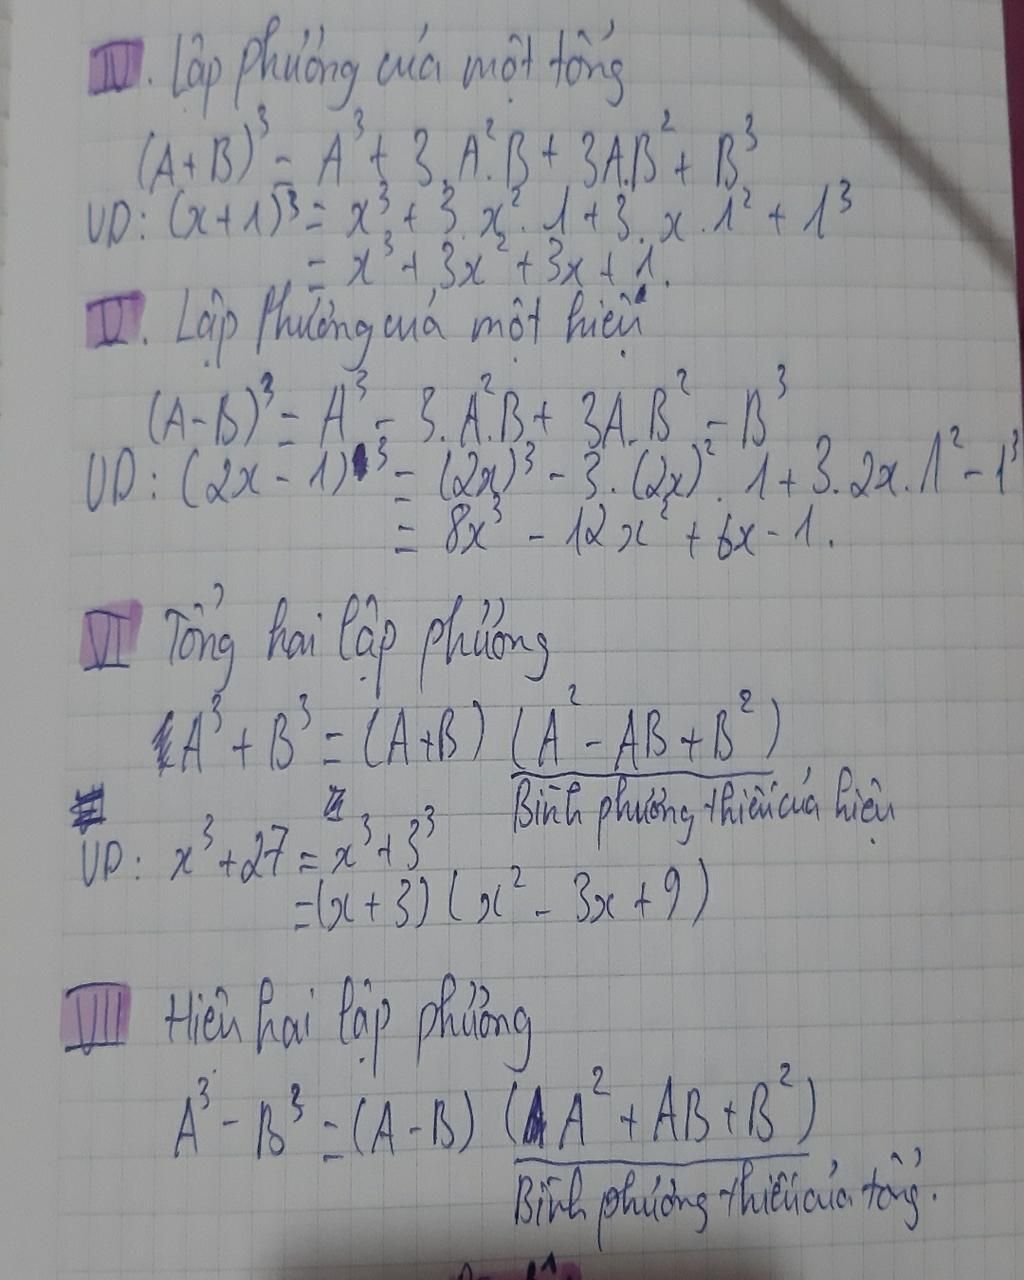 IV. Lập phương của một tổng
(A+B)³ = A³ + 3.A².B + 3A.B² + B³
VD: (x+1)³ = x³ + 3.x².1 + 3.x.1² + 1³
= x³ + 3x² + 3x + 1.
V. Lập phương của một hiệu
(A-B)³ = A³ - 3.A².B + 3A.B² - B³
VD: (2x - 1)³ = (2x)³ - 3.(2x)².1 + 3.2x.1² - 1³
= 8x³ - 12x² + 6x - 1.
VI Tổng hai lập phương
A³ + B³ = (A+B) (A² - AB + B²)
Bình phương thiếu của hiệu
VD: x³ + 27 = x³ + 3³
= (x + 3) (x² - 3x + 9)
VII Hiệu hai lập phương
A³ - B³ = (A - B) (A² + AB + B²)
Bình phương thiếu của tổng.